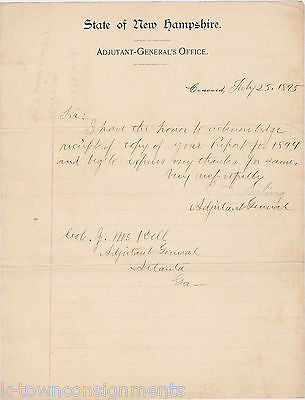 State of New Hampshire.
ADJUTANT-GENERAL'S OFFICE.
Concord, July 25, 1895
Sir:
I have the honor to acknowledge
receipt of copy of your Report for 1894
and beg to express my thanks for same.
Very respectfully
Adjutant General
Col. J. McI. Kell
Adjutant General
Atlanta
Ga—
k-townconsignments